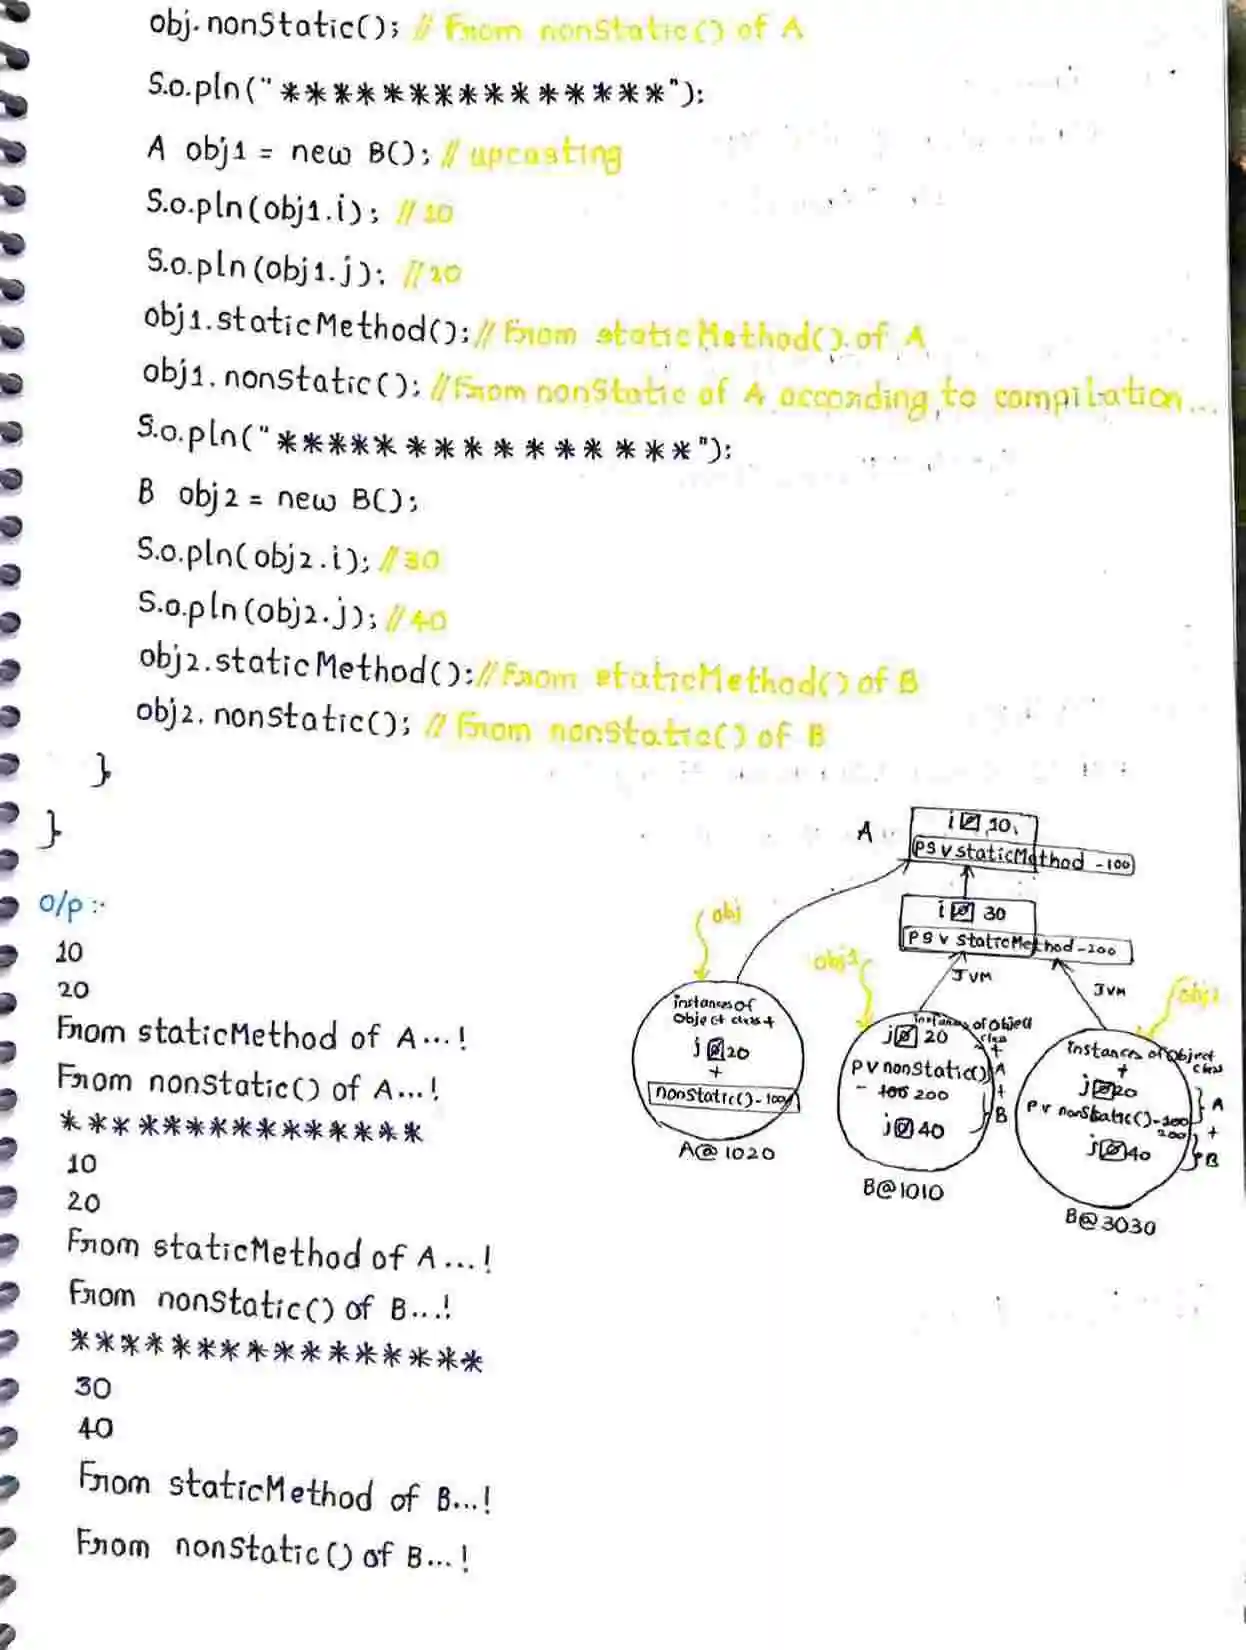 obj.nonStatic(); // From nonStatic() of A
S.o.pln("****************");
A obj1 = new B(); // upcasting
S.o.pln(obj1.i); // 10
S.o.pln(obj1.j); // 20
obj1.staticMethod(); // From staticMethod() of A
obj1.nonStatic(); // From nonStatic of A according to compilation...
S.o.pln("****************");
B obj2 = new B();
S.o.pln(obj2.i); // 30
S.o.pln(obj2.j); // 40
obj2.staticMethod(); // From staticMethod() of B
obj2.nonStatic(); // From nonStatic() of B
}
}
A
i 0 10
psv staticMethod - 100
i 0 30
psv staticMethod - 200
JVM
JVM
obj
instances of
object class +
j 0 20
+
nonStatic() - 100
A@1020
obj1
instances of object
class
+
j 0 20
pv nonStatic() A
- 100 200
+
j 0 40
B
B@1010
instances of object
class
+
j 0 20
pv nonStatic() - 100
200
A
+
j 0 40
B
B@3030
o/p :-
10
20
From staticMethod of A...!
From nonStatic() of A...!
***************
10
20
From staticMethod of A...!
From nonStatic() of B...!
****************
30
40
From staticMethod of B...!
From nonStatic() of B...!